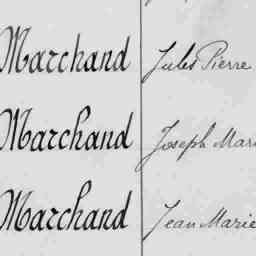 Marchand Jules Pierre
Marchand Joseph
Marchand Jean Marie